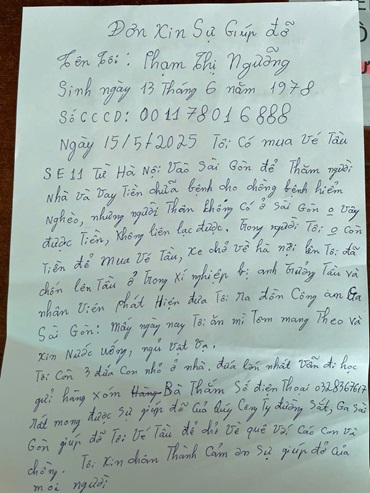 Đơn Xin Sự Giúp đỡ
Tên Tôi: Phạm Thị Ngưỡng
Sinh ngày 13 Tháng 6 năm 1978
Số CCCD: 001178016888
Ngày 15/5/2025 Tôi Có mua Vé Tàu
SE11 Từ Hà Nội Vào Sài Gòn để Thăm người
Nhà và Vay Tiền chữa bệnh cho chồng bệnh hiểm
Nghèo, những người Thân không Có ở Sài Gòn o Vay
được Tiền, không liên lạc được. Trong người Tôi o Còn
Tiền để Mua Vé Tàu, xe chở về hà nội lên Tôi đã
chốn lên Tàu ở Trong xí nghiệp bị anh Trưởng Tàu và
nhân Viên Phát Hiện đưa Tôi Ra đồn Công an Ga
Sài Gòn. Mấy ngày nay Tôi ăn mì Tôm mang Theo và
xin Nước uống, ngủ vật vạ.
Tôi Còn 3 đứa Con nhỏ ở nhà. đứa lớn nhất vẫn đi học
gửi hàng xóm Hàng Bà Thắm Số điện Thoại 0328367617
Rất mong được Sự giúp đỡ Của Quý Công Ty đường Sắt, Ga Sài
Gòn giúp đỡ Tôi Vé Tàu để về quê với Các Con và
chồng. Tôi Xin chân Thành Cảm ơn Sự giúp đỡ Của
mọi người